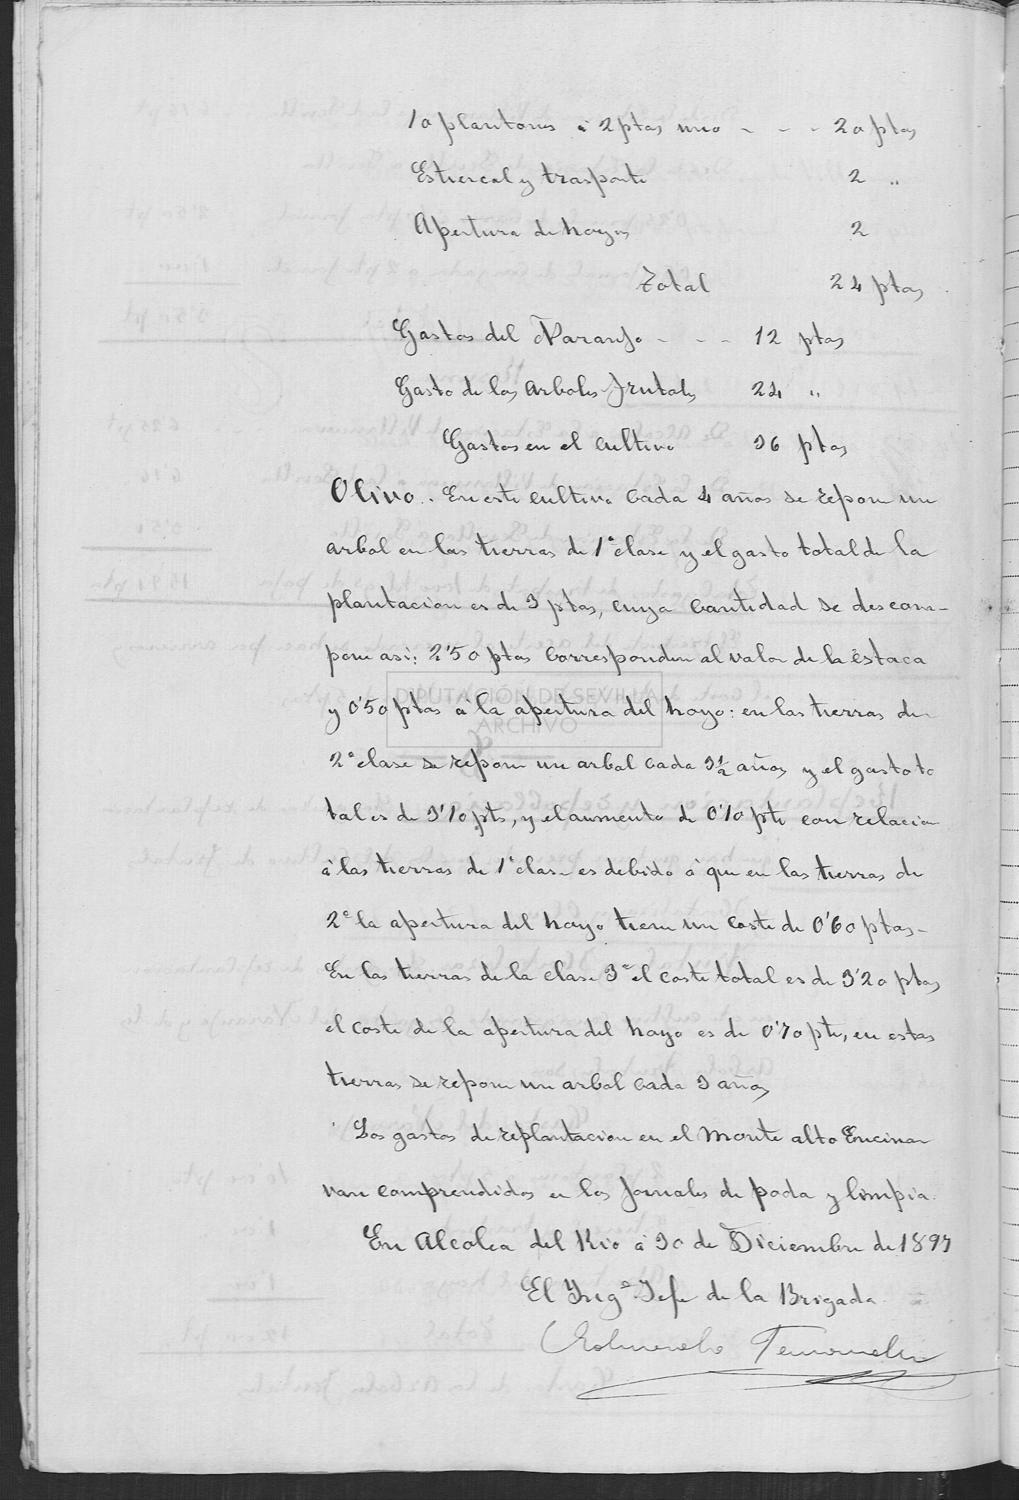 10 plantones á 2 ptas uno - - - 20 ptas
Estiercol y trasporte 2 "
Apertura de hoyos 2
Total 24 ptas
Gastos del Naranjo - - - 12 ptas
Gasto de los arboles frutales 24 "
Gastos en el cultivo 36 ptas
Olivo. En este cultivo cada 4 años se repone un
arbol en las tierras de 1ª clase y el gasto total de la
plantacion es de 3 ptas, cuya cantidad se descom-
pone asi: 2'50 ptas corresponden al valor de la estaca
y 0'50 ptas á la apertura del hoyo: en las tierras de
DIPUTACIÓN DE SEVILLA
ARCHIVO
2ª clase se repone un arbol cada 3½ años y el gasto to
tal es de 3'10 pts, y el aumento de 0'10 pts con relacion
á las tierras de 1ª clase es debido á que en las tierras de
2ª la apertura del hoyo tiene un coste de 0'60 ptas-
En las tierras de la clase 3ª el coste total es de 3'20 ptas
el coste de la apertura del hoyo es de 0'70 pts, en estas
tierras se repone un arbol cada 3 años
Los gastos de replantacion en el Monte alto Encinar
van comprendidos en los Jornales de poda y limpia.
En Alcolea del Rio á 30 de Diciembre de 1897
El Yngº Jefe de la Brigada